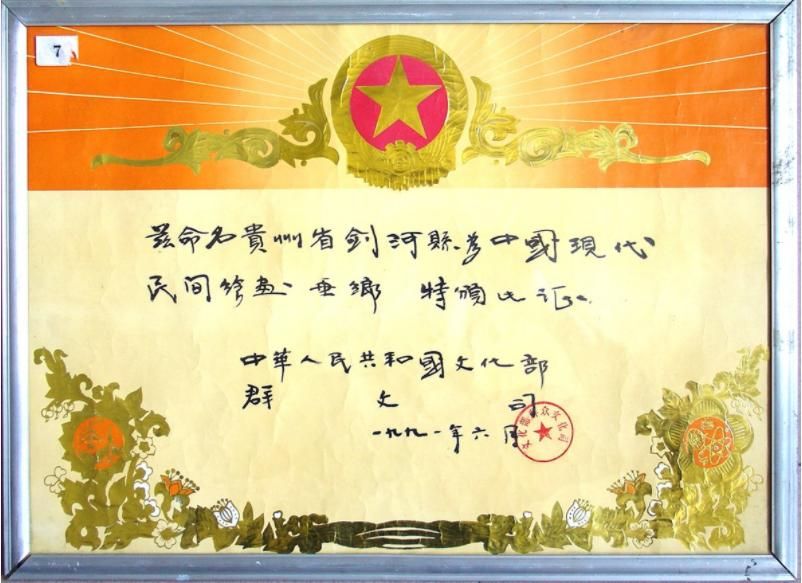 7
兹命名貴州省剑河縣为中國現代
民间绘画画鄉 特頒此证
中華人民共和國文化部
群文司
一九九一年六月
文化部群众文化司